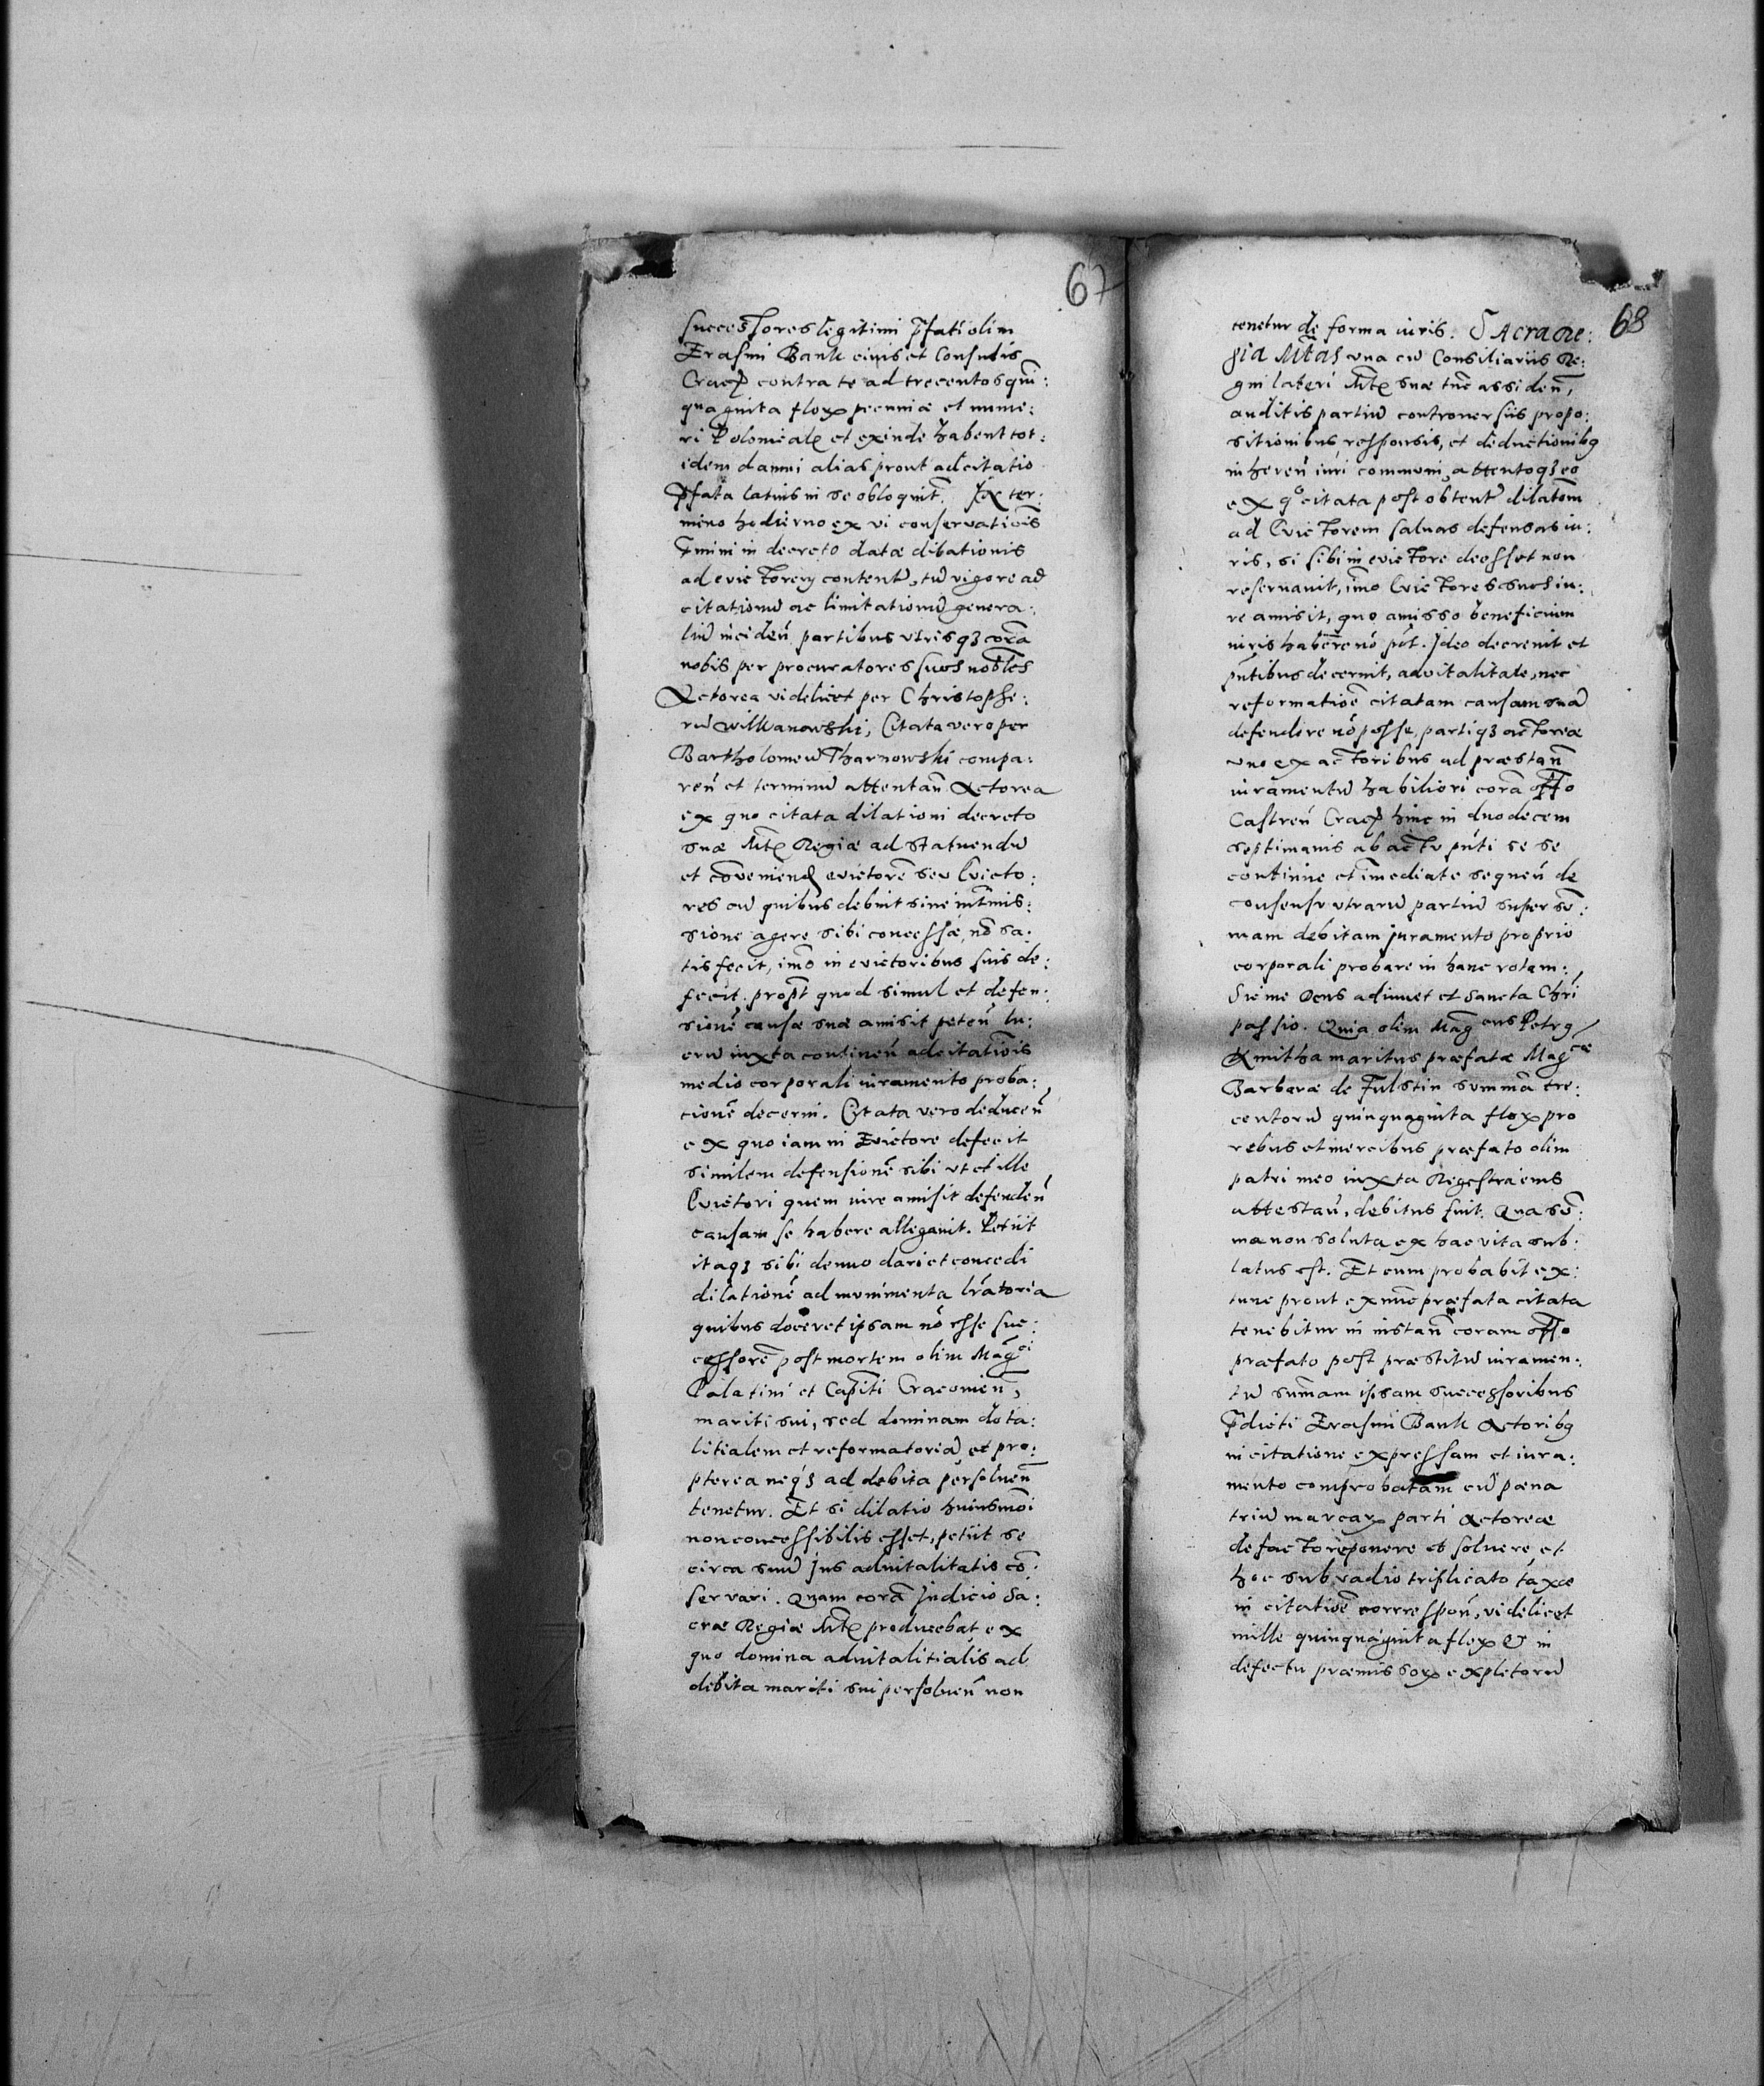 67
successores legitimi p̄fati olim
Erasmi Bank civis et Consulis
Cracȝ contra te ad trecentos qui͞n:
quaginta floꝝ pecuniæ et nume:
ri Polonicalꝭ et exinde habent tot:
idem damni alias prout adcitatio
p̄fata latius in se obloquit͞. In ter:
mino hodierno ex vi conservatiois
t͞mini in decreto datæ dilationis
ad evictorem contentū, tū vigore ad
citationū ac limitationū genera:
liū inciden̄ partibus utrisqȝ cora͞
nobis per procuratores suos nobiles
Actorea videlicet per Christophe:
rū Wilkanowski, Citata vero per
Bartholomeū Tharnowski compa:
ren̄ et terminū attentan̄ Actorea
ex quo citata dilationi decreto
suæ Mt͞ꝭ Regiæ ad statuendū
et co͞veniendꝭ evictore͞ seu Evicto:
res cū quibus debuit sine int͞mis:
sione agere sibi concessæ, no͞ sa:
tis fecit, imo͞ in evictoribus suis de:
fecit. propt͞ quod simul et defen:
sione͞ causæ suæ amisit peten̄ lu:
crū iuxta continen̄ adcitatiois
medio corporali iuramento proba:
tione͞ decerni. Citata vero deducen̄
ex quo iam in Evictore defecit
similem defensione͞ sibi ut et ille
Evictori quem iure amisit defenden̄
causam se habere allegavit. Petiit
itaqȝ sibi denuo dari et concedi
dilatione͞ ad munimenta lr͞atoria
quibus doceret ipsam no͞ esse suc:
cessore͞ post mortem olim Mag^ci
Palatini et Capiti͞ Cracovien̄,
mariti sui, sed dominam dota:
litialem et reformatoria͞ et pro:
pterea neqȝ ad debita persolven̄
tenetur. Et si dilatio huiusmo͞i
non concessibilis esset, petiit se
circa suū jus advitalitatis co͞:
servari. Quam cora͞ Judicio Sa:
cræ Regiæ Mt͞ꝭ producebat ex
quo domina advitalitialis ad
debita mariti sui persolven̄ non
68
tenetur de forma iuris. SAcra Re:
gia Mt͞as una cū Consiliariis Re:
gni lateri Mt͞ꝭ suæ tu͞c assiden̄,
auditis partiū controversiis propo:
sitionibus responsis, et deductionibꝯ
inheren̄ iuri communi, attentoqȝ eo
ex qo citata post obtentā dilato͞m
ad Evictorem salvas defensas iu:
ris, si sibi in evictore deesset non
reservavit, imo Evictores suos iu:
re amisit, quo amisso beneficium
iuris habere no͞ po͞t. Ideo decrevit et
pn͞tibus decernit, advitalitate, nec
reformatioe͞ citatam causam suā
defendere no͞ posse, partiqȝ actoreæ
uno ex actoribus ad præstan̄
iuramentū habiliori cora͞ off͞o
Castren̄ Cracȝ hinc in duodecem
septimanis ab actu pn͞ti se se
continue et i͞mediate sequen̄ de
consensu utrarū partiū super su͞:
mam debitam juramento proprio
corporali probare in hanc rotam:
Sic me Deus adiuvet et Sancta Chr͞i
passio. Quia olim Mag^cus Petrꝯ
Kmitha maritus præfatæ Mag^cæ
Barbaræ de Fulstin summa͞ tre:
centorū quinquaginta floꝝ pro
rebus et mercibus præfato olim
patri meo iuxta Regestra eius
attestan̄, debitus fuit. Qua su͞:
ma non soluta ex hac vita sub:
latus est. Et cum probabit ex:
tunc prout ex nu͞c præfata citata
tenebitur in instan̄ coram off͞o
præfato post præstitū iuramen:
tū su͞mam ipsam successoribus
p̄dicti Erasmi Bank Actoribꝯ
in citatione expressam et iura:
mento comprobatam cū pœna
triū marcaꝝ parti Actoreæ
de facto reponere et solvere et
hoc sub vadio triplicato taxæ
in citatioe͞ correspon̄, videlicet
mille quinquaginta floꝝ & in
defectu præmissoꝝ expletorū